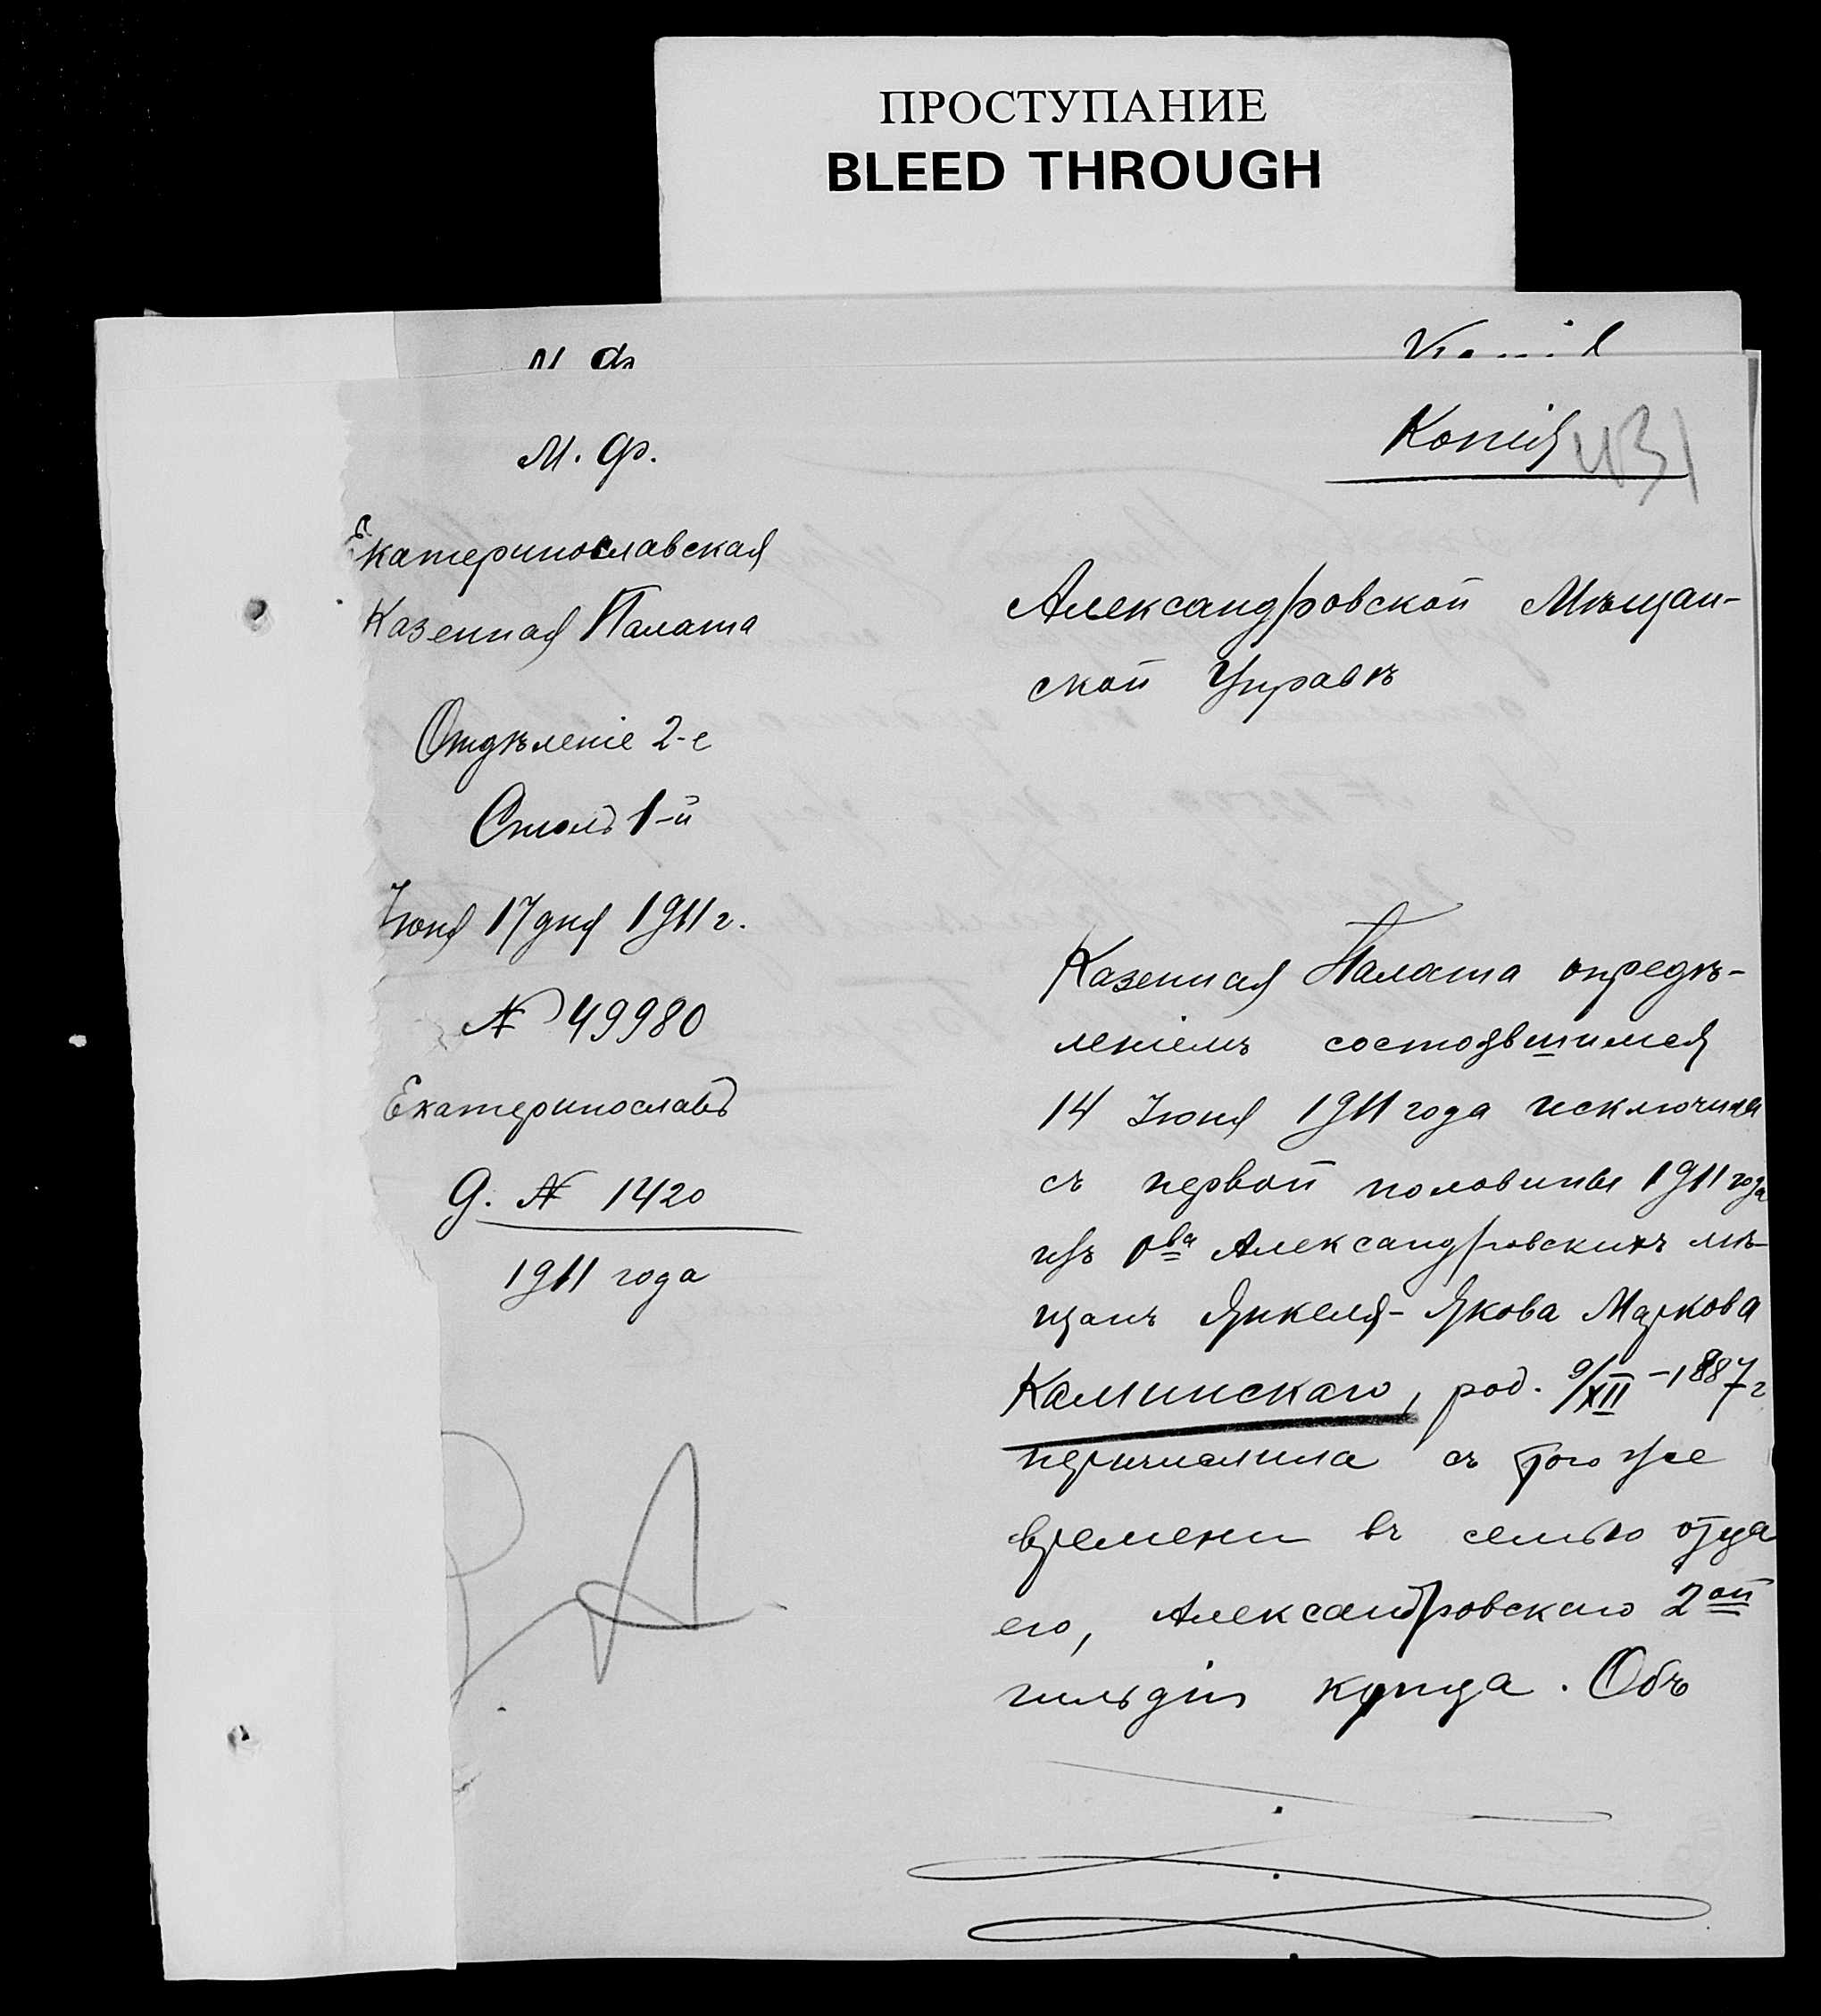 ПРОСТУПАНИЕ
BLEED THROUGH
М. Ф.
Копія
431
Екатеринославская
Казенная Палата
Отдѣленіе 2-е
Столъ 1-й
Іюня 17 дня 1911 г.
№ 49980
Екатеринославъ
Д. № 1420
1911 года
Александровской Мѣщан-
ской Управѣ
Казенная Палата опредѣ-
леніемъ состоявшимся
14 Іюня 1911 года исключила
съ первой половины 1911 года
изъ о-ва Александровскихъ мѣ-
щанъ Янкеля-Якова Маркова
Каминскаго, род. 9/XII-1887 г
перечислила съ того же
времени въ семью отца
его, Александровскаго 2ой
гильдіи купца. Объ